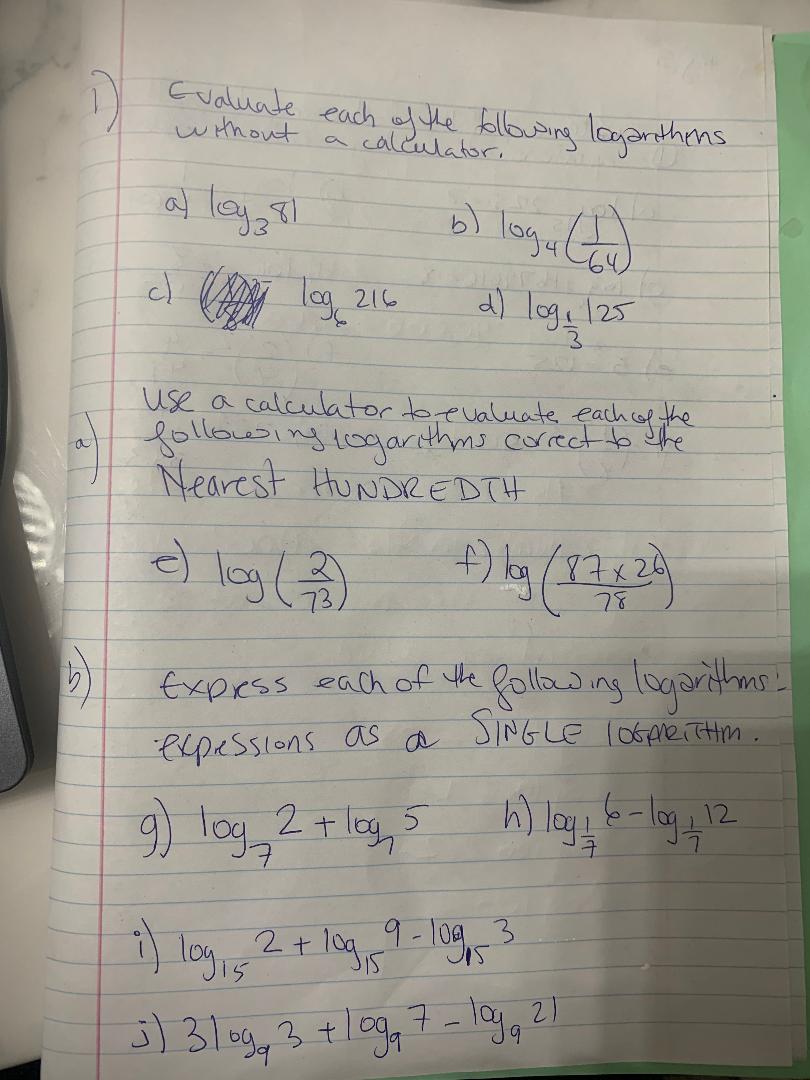 1) Evaluate each of the following logarithms
without a calculator.
a) log₃ 81 b) log₄ (1/64)
c) log₆ 216 d) log_{1/3} 125
Use a calculator to evaluate each of the
a) following logarithms correct to the
Nearest HUNDREDTH
e) log (2/73) f) log (87 x 26/78)
b) Express each of the following logarithms
expessions as a SINGLE LOGARITHM.
g) log₇ 2 + log₇ 5 h) log_{1/7} 6 - log_{1/7} 12
i) log₁₅ 2 + log₁₅ 9 - log₁₅ 3
j) 3 log₉ 3 + log₉ 7 - log₉ 21